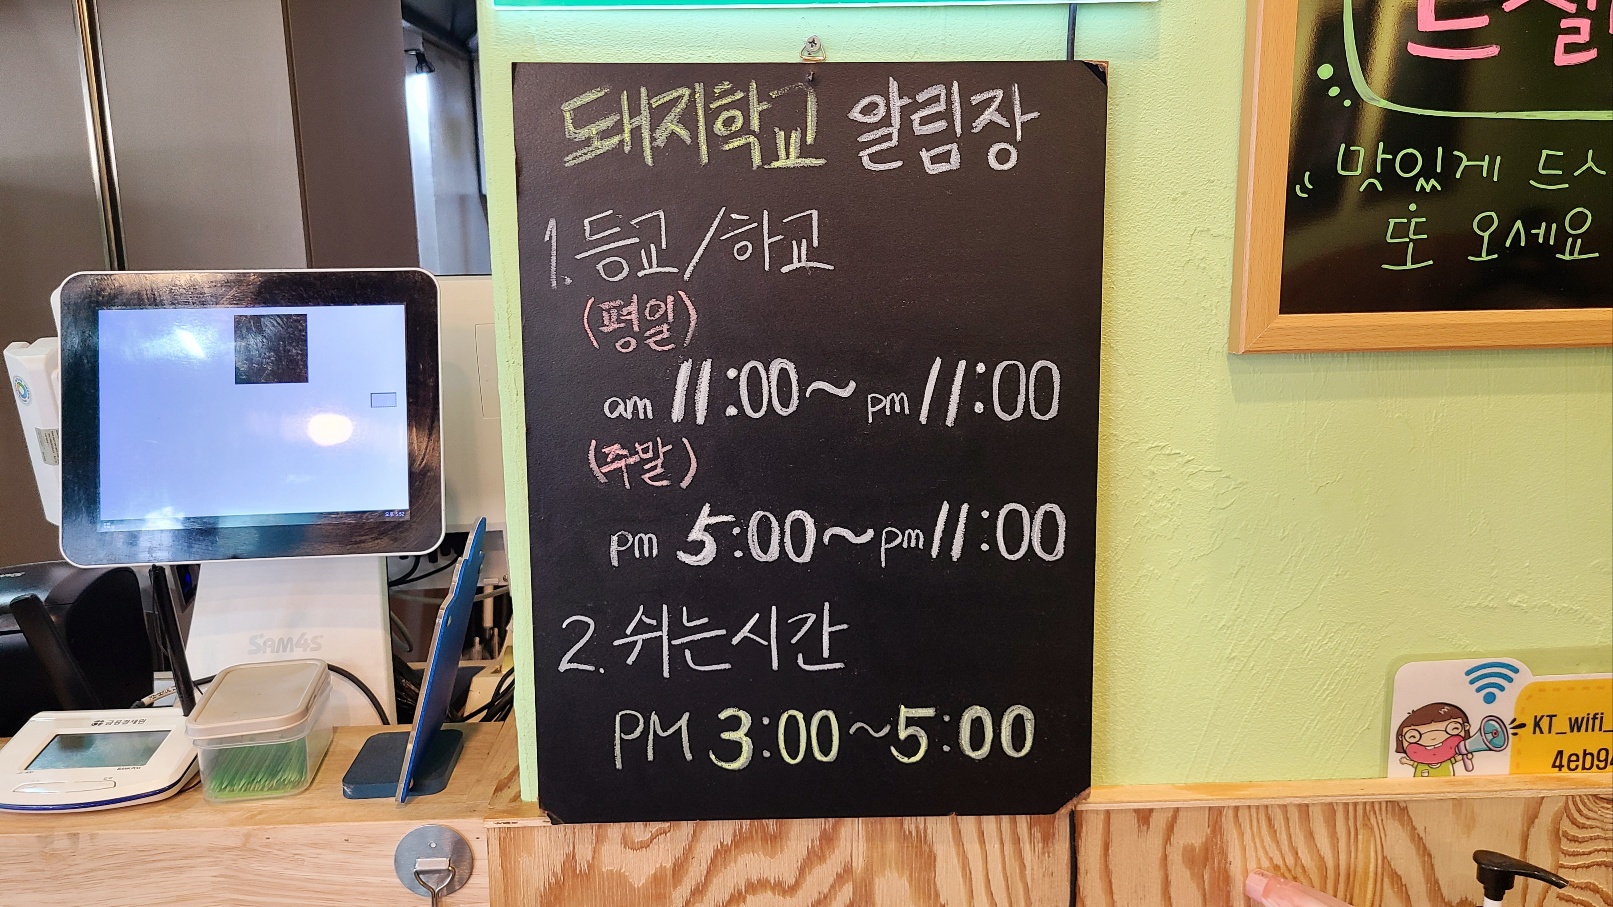 돼지학교 알림장
1. 등교/하교
(평일)
am 11:00~pm 11:00
(주말)
pm 5:00~pm 11:00
2. 쉬는시간
PM 3:00~5:00
맛있게 드시
또 오세요
SAM4S
KT_wifi_
4eb94